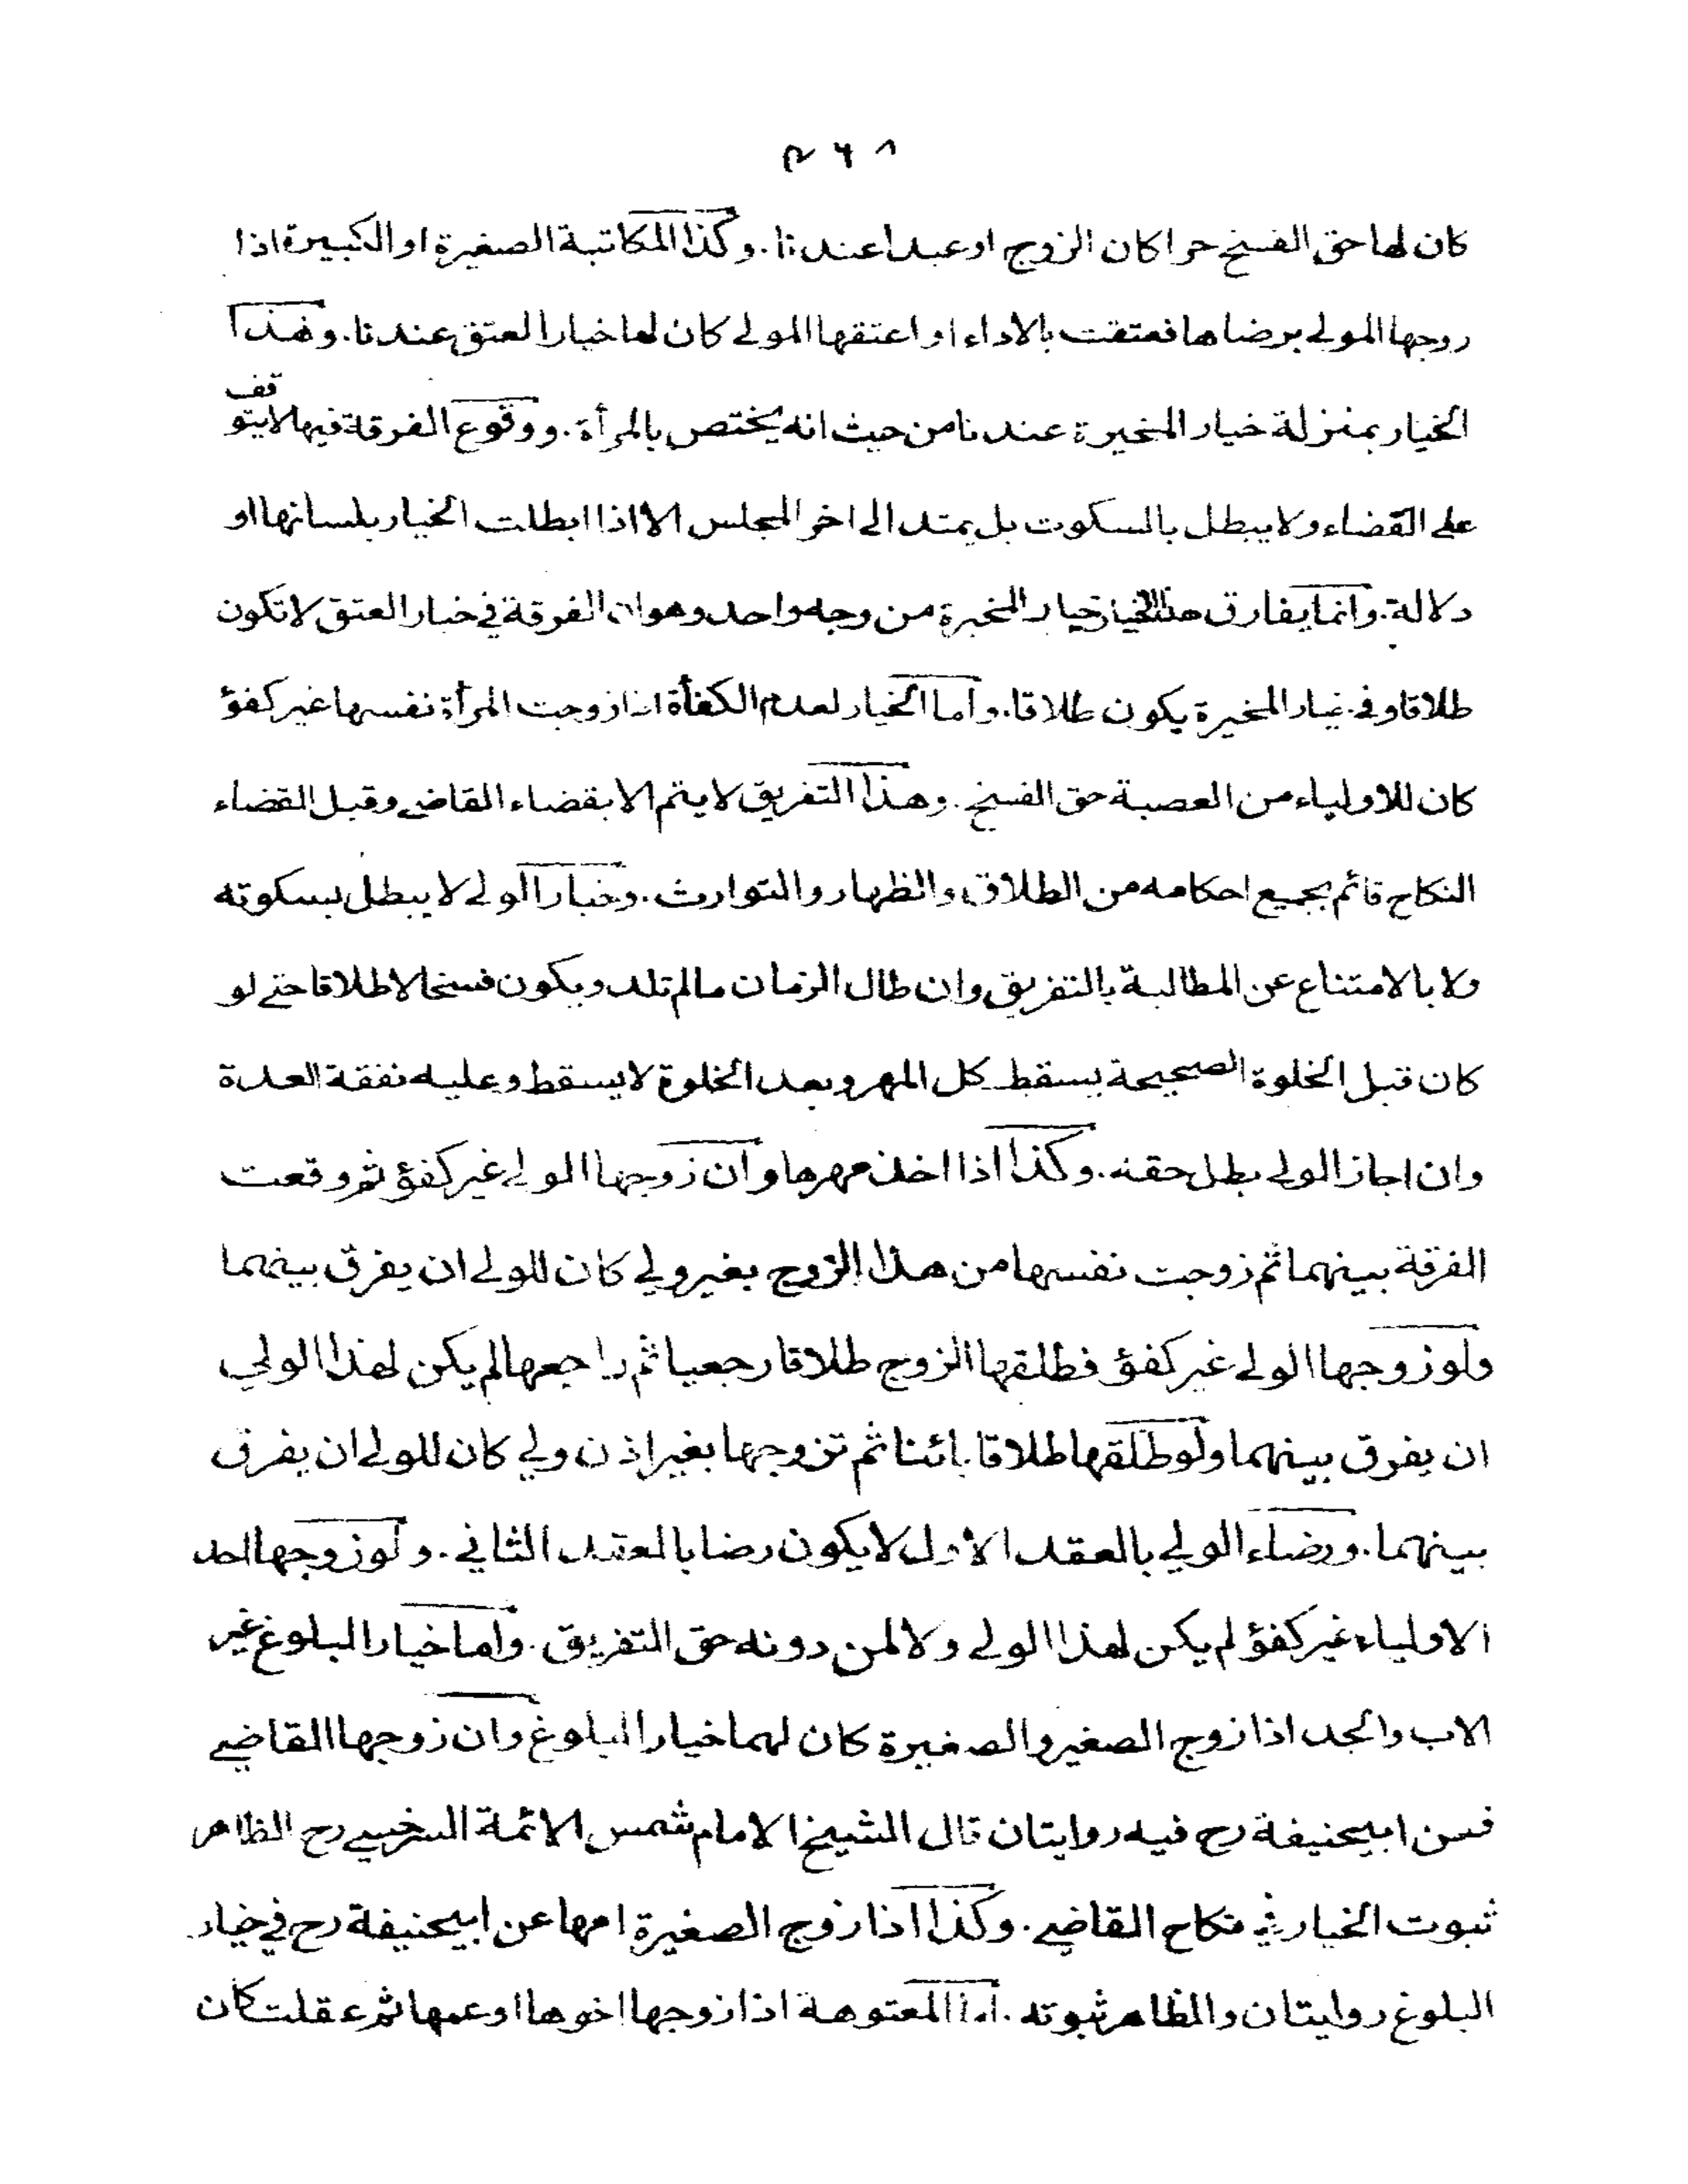 ٤٦٨
كان لها حق الفسخ حرا كان الزوج او عبدا عندنا. وكذا المكاتبة الصغيرة او الكبيرة اذا
زوجها المولى برضاها فعتقت بالاداء او اعتقها المولى كان لها خيار العتق عندنا. وهذا
الخيار بمنزلة خيار المخيرة عندنا من حيث انه يختص بالمرأة. ووقوع الفرقة فيها لا يتوقف
على القضاء ولا يبطل بالسكوت بل يمتد الى اخر المجلس الا اذا ابطلت الخيار بلسانها او
دلالة. وانما يفارق هذا الخيار خيار المخيرة من وجه واحد وهو ان الفرقة في خيار العتق لا تكون
طلاقا وفي خيار المخيرة يكون طلاقا. واما الخيار لعدم الكفأة اذا زوجت المرأة نفسها غير كفؤ
كان للاولياء من العصبة حق الفسخ. وهذا التفريق لا يتم الا بقضاء القاضي وقبل القضاء
النكاح قائم بجميع احكامه من الطلاق والظهار والتوارث. وخيار الولي لا يبطل بسكوته
ولا بالامتناع عن المطالبة بالتفريق وان طال الزمان ما لم تلد ويكون فسخا لا طلاقا حتى لو
كان قبل الخلوة الصحيحة يسقط كل المهر وبعد الخلوة لا يسقط وعليه نفقة العدة
وان اجاز الولي بطل حقه. وكذا اذا اخذ مهرها وان زوجها الولي غير كفؤ ثم وقعت
الفرقة بينهما ثم زوجت نفسها من هذا الزوج بغير ولي كان للولي ان يفرق بينهما
ولو زوجها الولي غير كفؤ فطلقها الزوج طلاقا رجعيا ثم راجعها لم يكن لهذا الولي
ان يفرق بينهما ولو طلقها طلاقا بائنا ثم تزوجها بغير اذن ولي كان للولي ان يفرق
بينهما. ورضاء الولي بالعقد الاول لا يكون رضا بالعقد الثاني. ولو زوجها احد
الاولياء غير كفؤ لم يكن لهذا الولي ولا لمن دونه حق التفريق. واما خيار البلوغ غير
الاب والجد اذا زوج الصغير والصغيرة كان لهما خيار البلوغ وان زوجها القاضي
فعن ابيحنيفة رح فيه روايتان قال الشيخ الامام شمس الائمة السرخسي رح الظاهر
ثبوت الخيار في نكاح القاضي. وكذا اذا زوج الصغيرة امها عن ابيحنيفة رح في خيار
البلوغ روايتان والظاهر ثبوته. اما المعتوهة اذا زوجها اخوها او عمها ثم عقلت كان